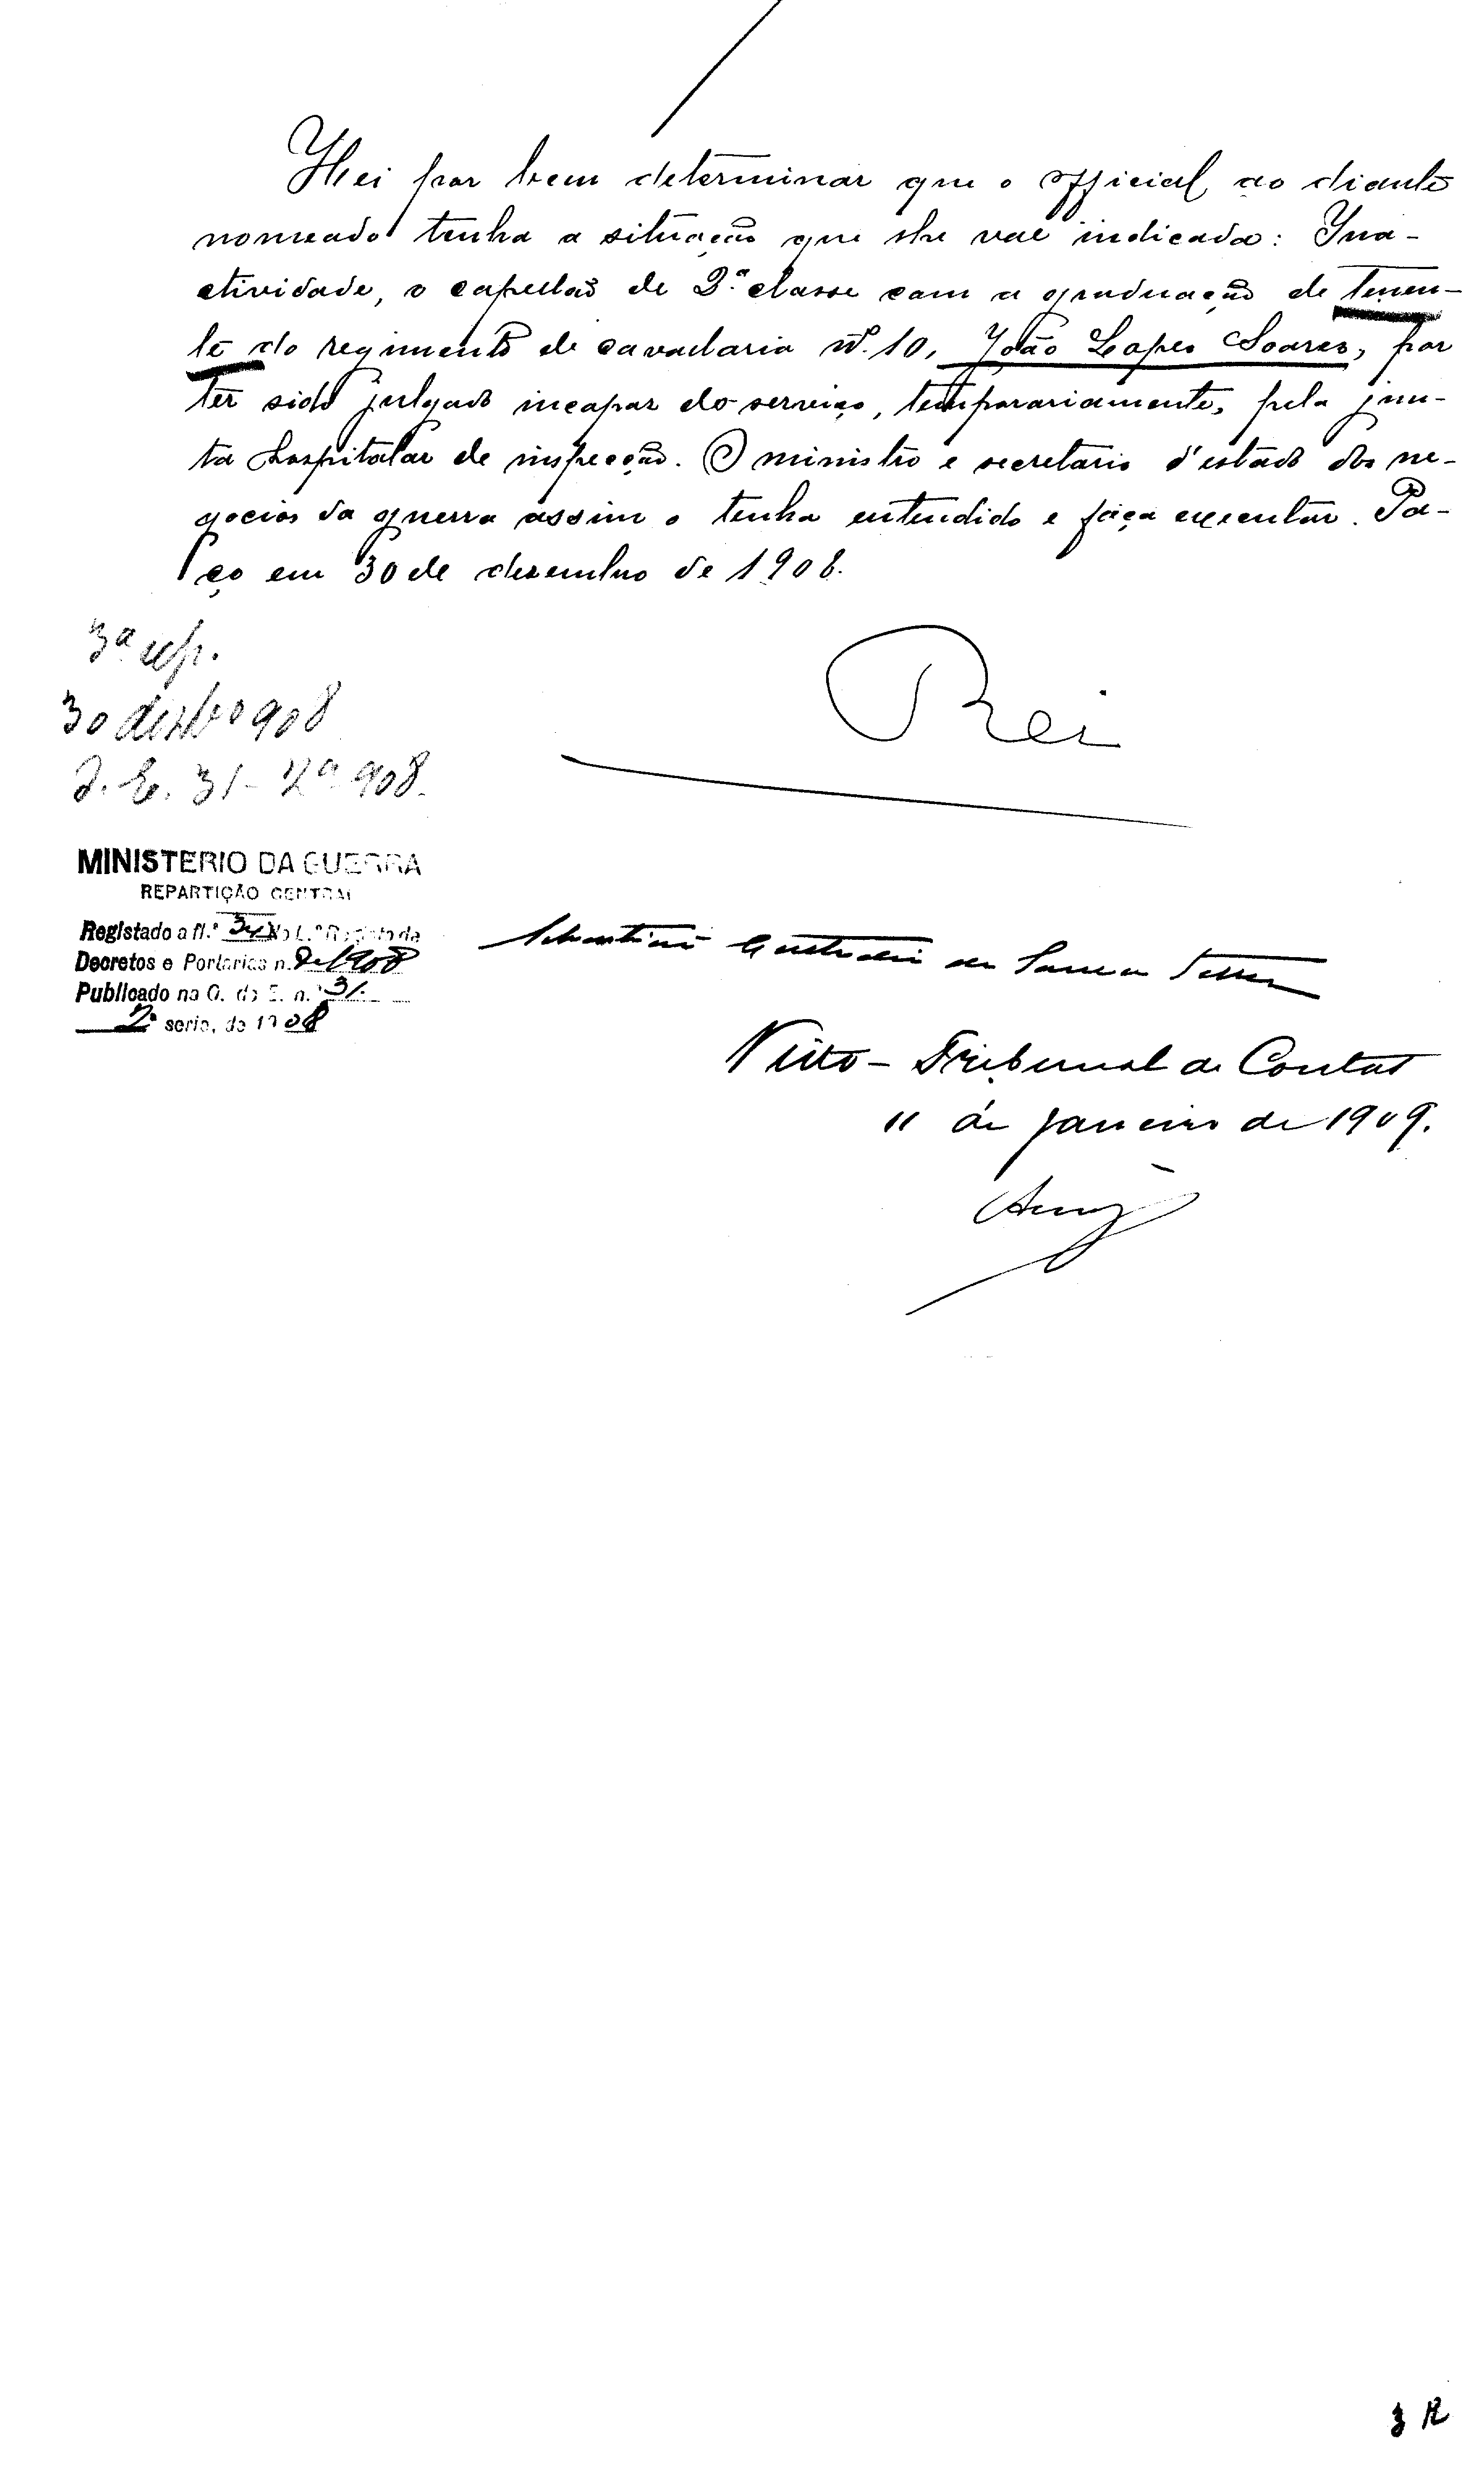 Hei por bem determinar que o official ao diante
nomeado tenha a situação que lhe vae indicada: Ina-
ctividade, o capellão de 2.ª classe com a graduação de tenen-
te do regimento de cavallaria nº. 10, João Lopes Soares, por
ter sido julgado incapaz do serviço, temporariamente, pela jun-
ta hospitalar de inspecção. O ministro e secretario d'estado dos ne-
gocios da guerra assim o tenha entendido e faça executar. Pa-
ço em 30 de dezembro de 1908.
3ª rep.
30 dezbro 908
O. E. 31 - 2ª 908.
Rei
MINISTERIO DA GUERRA
REPARTIÇÃO CENTRAL
Registado a fl.ª No L.º Registo de
Decretos e Portarias n. 2 de 1908
Publicado na O. do E. n.º 31.
2ª serie, de 1908
Sebastião Custodio de Sousa Telles
Visto - Tribunal de Contas
11 de Janeiro de 1909.
3 R